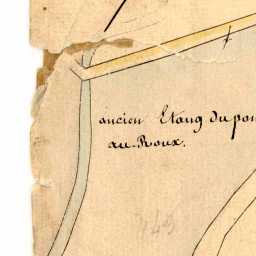 ancien Etang du pon
au Roux.
149